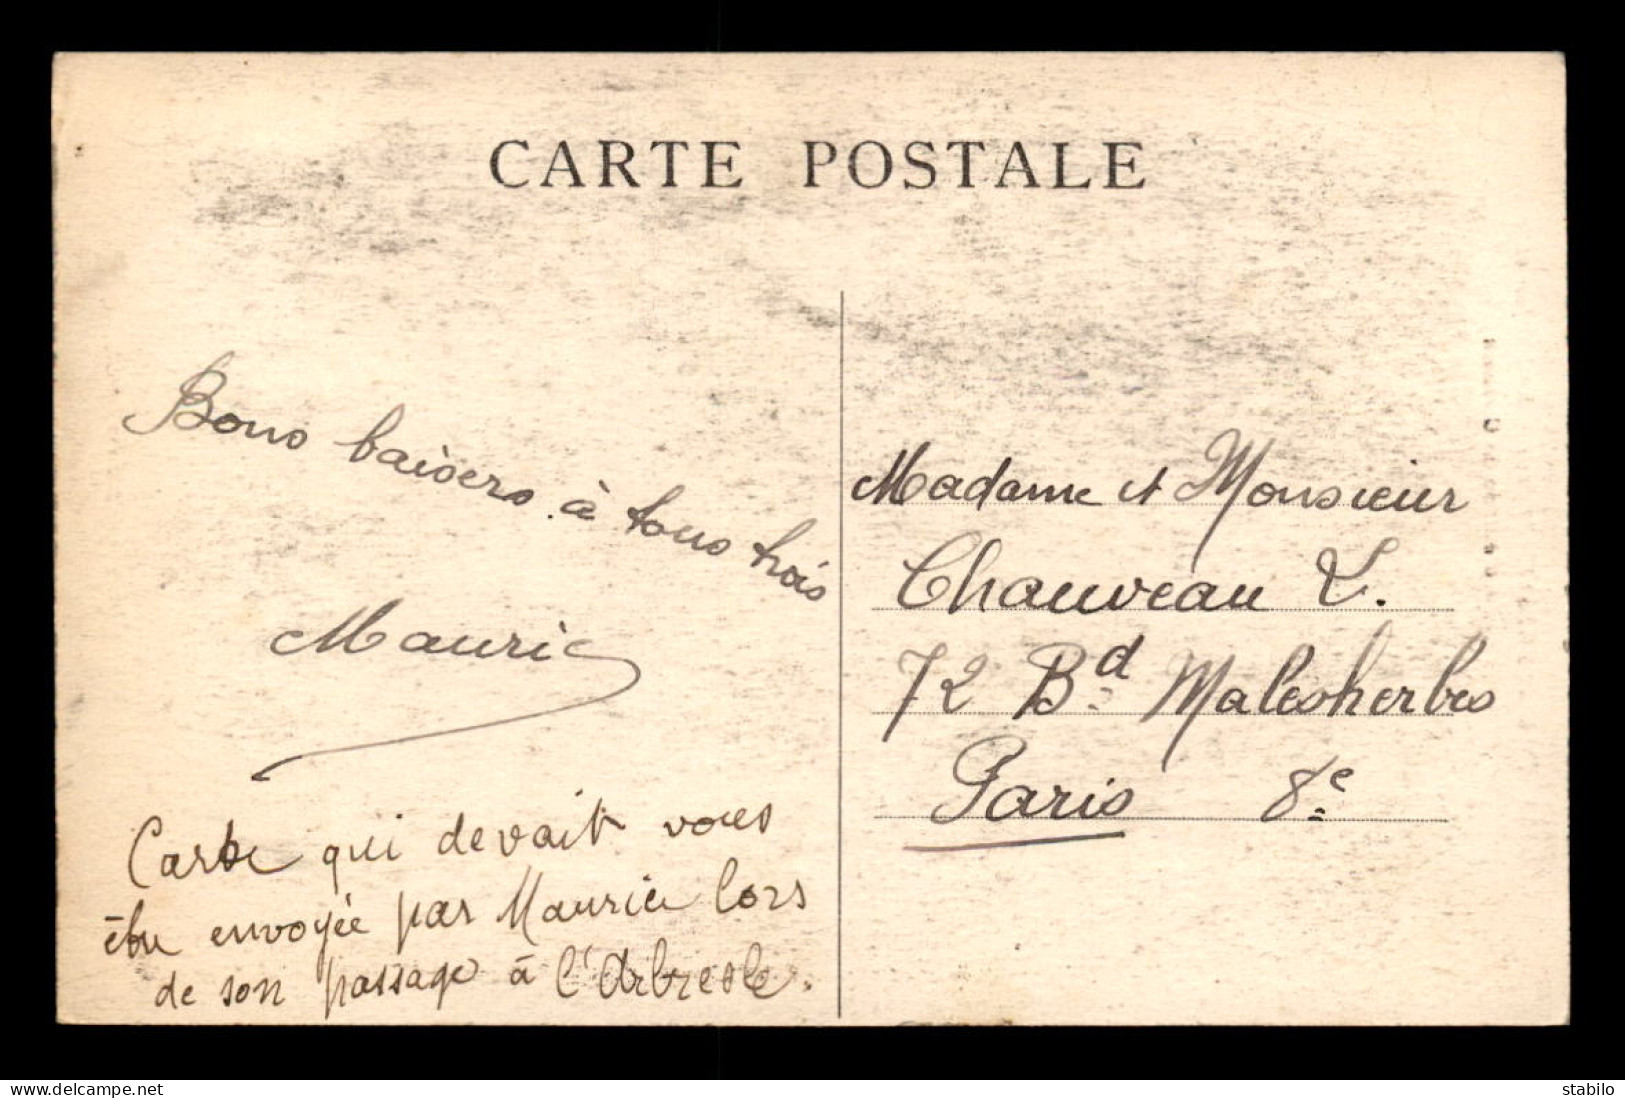 CARTE POSTALE
Bons baisers à tous trois
Maurice
Carte qui devait vous
être envoyée par Maurice lors
de son passage à l'Arbresle.
Madame et Monsieur
Chauveau L.
72 Bd Malesherbes
Paris 8e
www.delcampe.net
stabilo